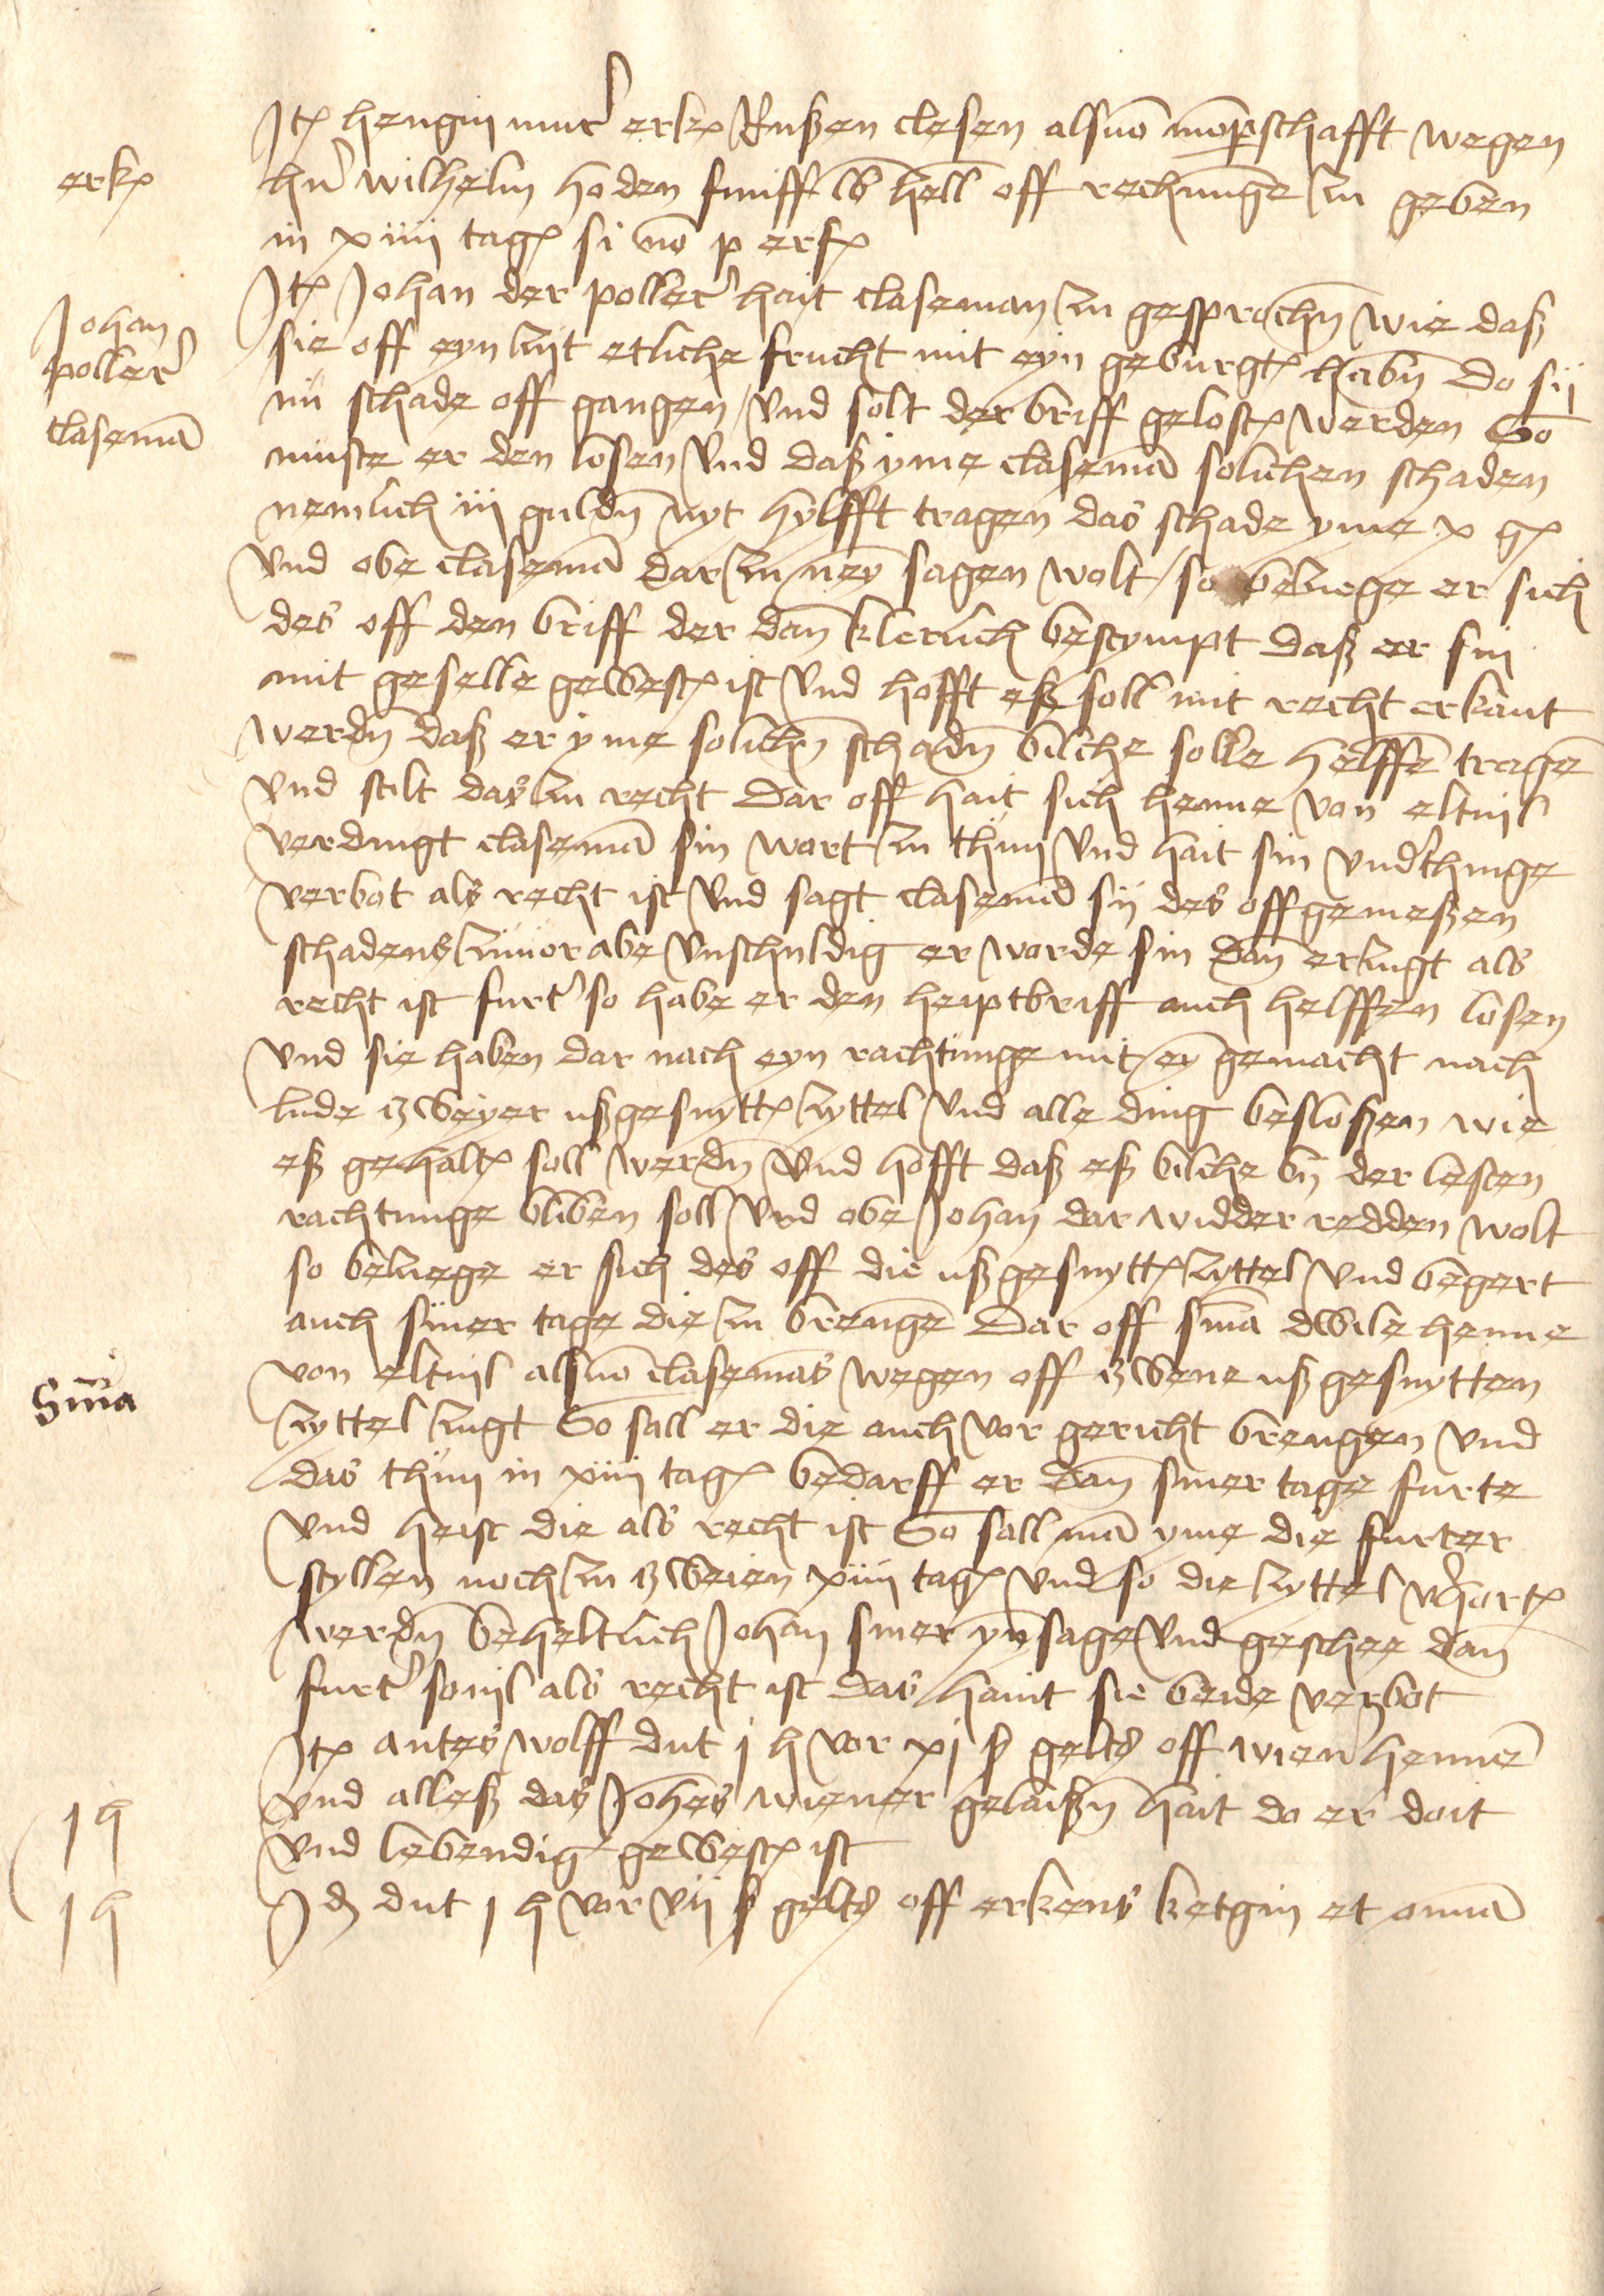 Itꝫ hengin mur' erkꝫ Rußen clesen als vō mōp̱schafft wegen
erkꝫ
hr̄ wilhelm hoden funiff lb hell' off rechnūnge zu geben
in xiiii tagꝫ si nō p erfꝫ
Itꝫ Johan der poller' hait claseman zu gesprochn̄ wie daß
Johan
poller'
clasemā
sie off eyn zijt etliche frucht mit eyn geburgtꝫ habn̄ Do sij
nü schade off gangen / Vnd solt der briff gelostꝫ werden So
muste er den losen Vnd daß yme clasemā solichen schaden
nemlich iii guldn̄ nyt hylfft tragen das schade yme x gꝫ
Vnd obe clasemā dar zu ney sagen wolt / so bezuege er sich
des off den briff der dan̄ klerlich bestympt daß er sin
mit geselle gewestꝫ ist Vnd hofft eß soll mit recht erkant
werdn̄ daß er yme solichn̄ schadn̄ bilche solle helffē tragē
Vnd stilt das zu recht Dar off hait sich henne von eltuil
verdingt clasemā sin wort zu thun Vnd hait sin vnd'thinge
verbot als recht ist Vnd sagt clasemā sij des offgemeßen
schadens zuuor abe vnschuldig er worde sin dan̄ erzugt als
recht ist furt' so habe er den heiptbriff auch helffen losen
Vnd sie haben dar nach eyn rachtunge mit ey gemacht nach
lude zweyer ußgesnyttꝫ zyttel Vnd alle ding besloßen wie
eß gehaltꝫ soll werdn̄ Vnd hofft daß eß bilche bij der lesten
rachtunge bliben soll Vnd obe Johan dar widder redden wolt
so bezuege er sich des off die ußgesnyttꝫ zyttel Vnd begert
auch siner tage die zu brengē Dar off sma dwile henne
Sma
von eltuil als vō clasemās wegen off zwene ußgesnytten
zyttel zugt So sall er die auch vor gericht brengen Vnd
das thun in xiiii tagꝫ bedarff er dan̄ siner tage furte
Vnd heist die als recht ist So sall mā yme die furter
styllen noch zu zweien xiiii tagꝫ Vnd so die zyttel v'hortꝫ
werdn̄ beheltlich Johan siner ynsage Vnd geschee dan̄
furt' souil als recht ist das haint sie beide verbot
Itꝫ antes wolff dut j h vor xj ß gelts off wien' hennē
j h
Vnd alleß das Johēs wiener gelaißn̄ hait do er doit
Vnd lebendig gewestꝫ ist
j h
Jdꝫ dut j h vor vij ß gelts off erkens ketgin et om̄ā